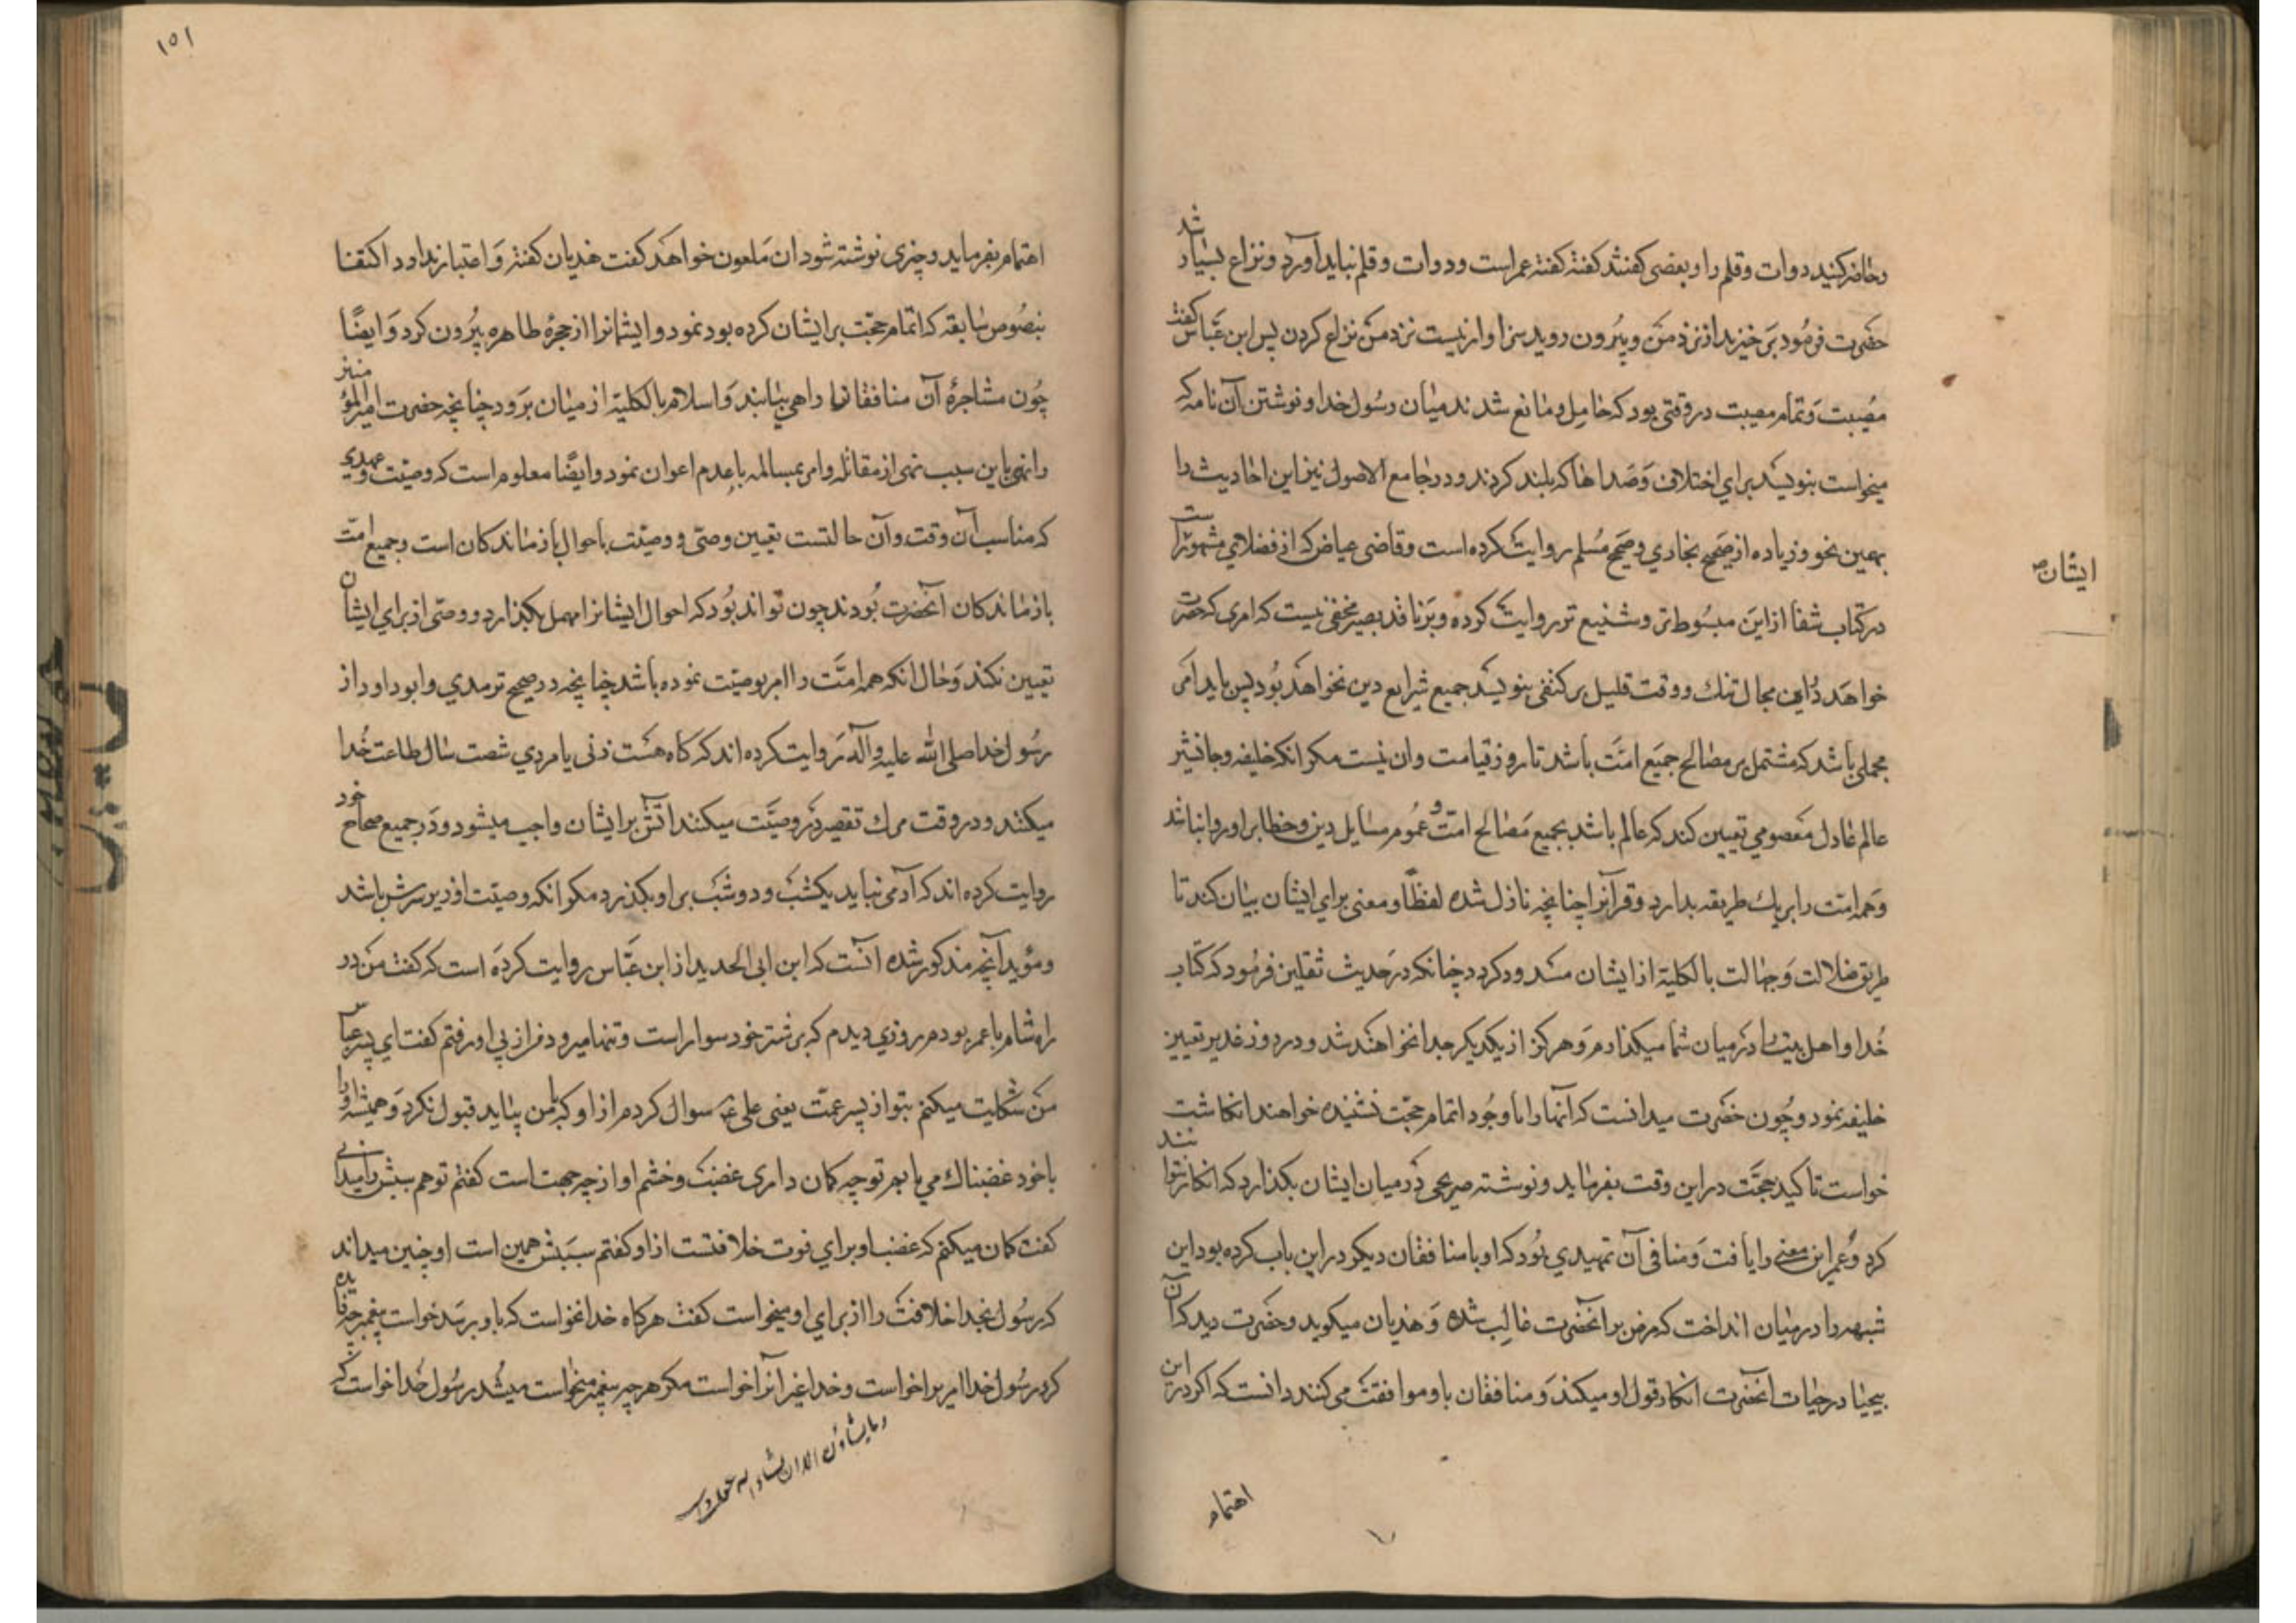 وحاضر کنید دوات و قلم را و بعضی گفتند گفته گفتهٔ عمر است و دوات و قلم نباید آورد و نزاع بسیار شد
حضرت فرمود برخیزید از نزد من و بیرون روید سزاوار نیست نزد من نزاع کردن پس ابن عباس گفت
مصیبت و تمام مصیبت در وقتی بود که حایل و مانع شدند میان رسول خدا و نوشتن آن نامه که
میخواست بنویسد برای اختلاف و صداها که بلند کردند و در جامع الاصول نیز این احادیث را
بهمین نحو و زیاده از صحیح بخاری و صحیح مسلم روایت کرده است و قاضی عیاض که از فضلای مشهور است
ایشان
در کتاب شفا از این مبسوط تر و شنیع تر روایت کرده و بر ناقد بصیر مخفی نیست که امری که حضرت
خواهد در این مجال تنک و وقت قلیل بر کتفی بنویسد جمیع شرایع دین نخواهد بود پس باید امر
مجملی باشد که مشتمل بر مصالح جمیع امت باشد تا روز قیامت و ان نیست مکر انکه خلیفه و جانشین
عالم عادل معصومی تعیین کند که عالم باشد بجمیع مصالح امت و عموم مسایل دین و خطا بر او روا نباشد
و همه امت را بر یك طریقه بدارد و قرآنرا چنانچه نازل شده لفظًا و معنی برای ایشان بیان کند تا
طریق ضلالت و جهالت بالکلیة از ایشان مسدود کردد چنانکه در حدیث ثقلین فرمود که کتاب
خدا و اهل بیت را در میان شما میکذارم و هرکز از یکدیکر جدا نخواهند شد و در روز غدیر تعیین
خلیفه نمود و چون حضرت میدانست که انها را با وجود اتمام حجت نشنیده خواهند انکاشت
خواست تاکید حجت در این وقت بفرماید و نوشته صریحی در میان ایشان بکذارد که انکار نتوانند
کرد و عمر این معنی را یافت و منافی آن تمهیدی بود که او با منافقان دیکر در این باب کرده بود این
شبهه را در میان انداخت که مرض بر آنحضرت غالب شده و هذیان میکوید و حضرت دید که آن
بیحیا در حیات انحضرت انکار قول او میکند و منافقان با و موافقت می کنند دانست که اکر در این
اهتمام
۱۵۱
اهتمام بفرماید و چیزی نوشته شود ان ملعون خواهد کفت هذیان کفته و اعتبار ندارد اکتفا
بنصوص سابقه که اتمام حجت بر ایشان کرده بود نمود و ایشانرا از حجرهٔ طاهره بیرون کرد و ایضًا
چون مشاجرهٔ آن منافقان را راهی بیابند و اسلام بالکلیة از میان برود چنانچه حضرت امیر المؤمنین
را نهی باین سبب نهی از مقاتله و امر بمسالمه با عدم اعوان نمود و ایضًا معلوم است که وصیت و عهدی
که مناسب آن وقت و آن حالتست تعیین وصی و وصیت باحوال بازماندکان است و جمیع امت
بازماندکان آنحضرت بودند چون تواند بود که احوال ایشانرا مهمل بکذارد و وصی از برای ایشان
تعیین نکند و حال انکه همه امت را امر بوصیت نموده باشد چنانچه در صحیح ترمدی و ابو داود از
رسول خدا صلی الله علیه و آله روایت کرده اند که کاه هست زنی یا مردی شصت سال طاعت خدا
میکنند و در وقت مرك تقصیر در وصیت میکنند آتش بر ایشان واجب میشود و در جمیع صحاح خود
روایت کرده اند که آدمی نباید یکشب و دو شب بر او بکذرد مکر انکه وصیت او زیر سرش باشد
و مؤید آنچه مذکور شده آنست که ابن ابی الحدید از ابن عباس روایت کرده است که کفت من در
راه شام با عمر بودم روزی دیدم که بر شتر خود سوار است و تنها میرود من از پی او رفتم کفت ای پسر عباس
من شکایت میکنم بتو از پسر عمت یعنی علی ع سوال کردم از او که با من بیاید قبول نکرد و همیشه او را
با خود غضبناك می یابم تو چه کمان داری غضب و خشم او از چه جهت است کفتم تو هم سببش را میدانی
کفت کمان میکنم که غضب او برای فوت خلافتست از او کفتم سببش همین است او چنین میداند
که رسول خدا خلافت را از برای او میخواست کفت هرکاه خدا نخواست که باو برسد خواست پیغمبر چه فایده
کرد رسول خدا امریرا خواست و خدا غیر آنرا خواست مکر هر چه پیغمبر میخواست میشد رسول خدا خواست که